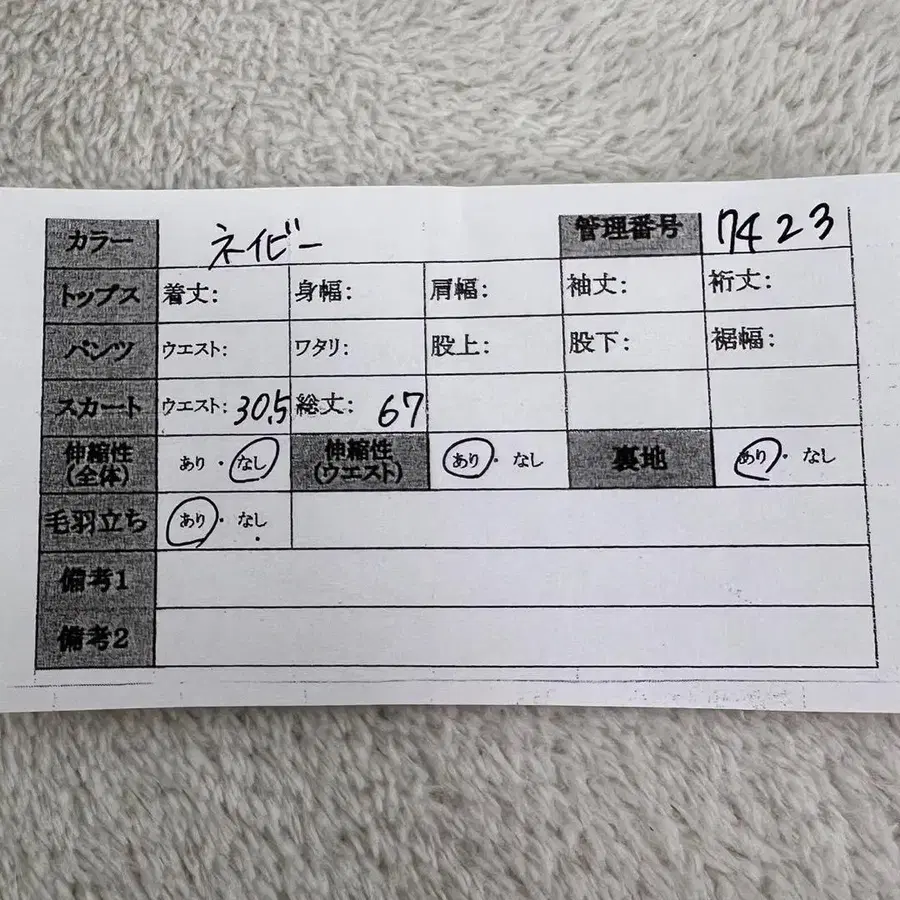 カラー ネイビー 管理番号 7423
トップス 着丈: 身幅: 肩幅: 袖丈: 裄丈:
パンツ ウエスト: ワタリ: 股上: 股下: 裾幅:
スカート ウエスト: 30.5 総丈: 67
伸縮性 (全体) あり・なし 伸縮性 (ウエスト) あり・なし 裏地 あり・なし
毛羽立ち あり・なし
備考1
備考2